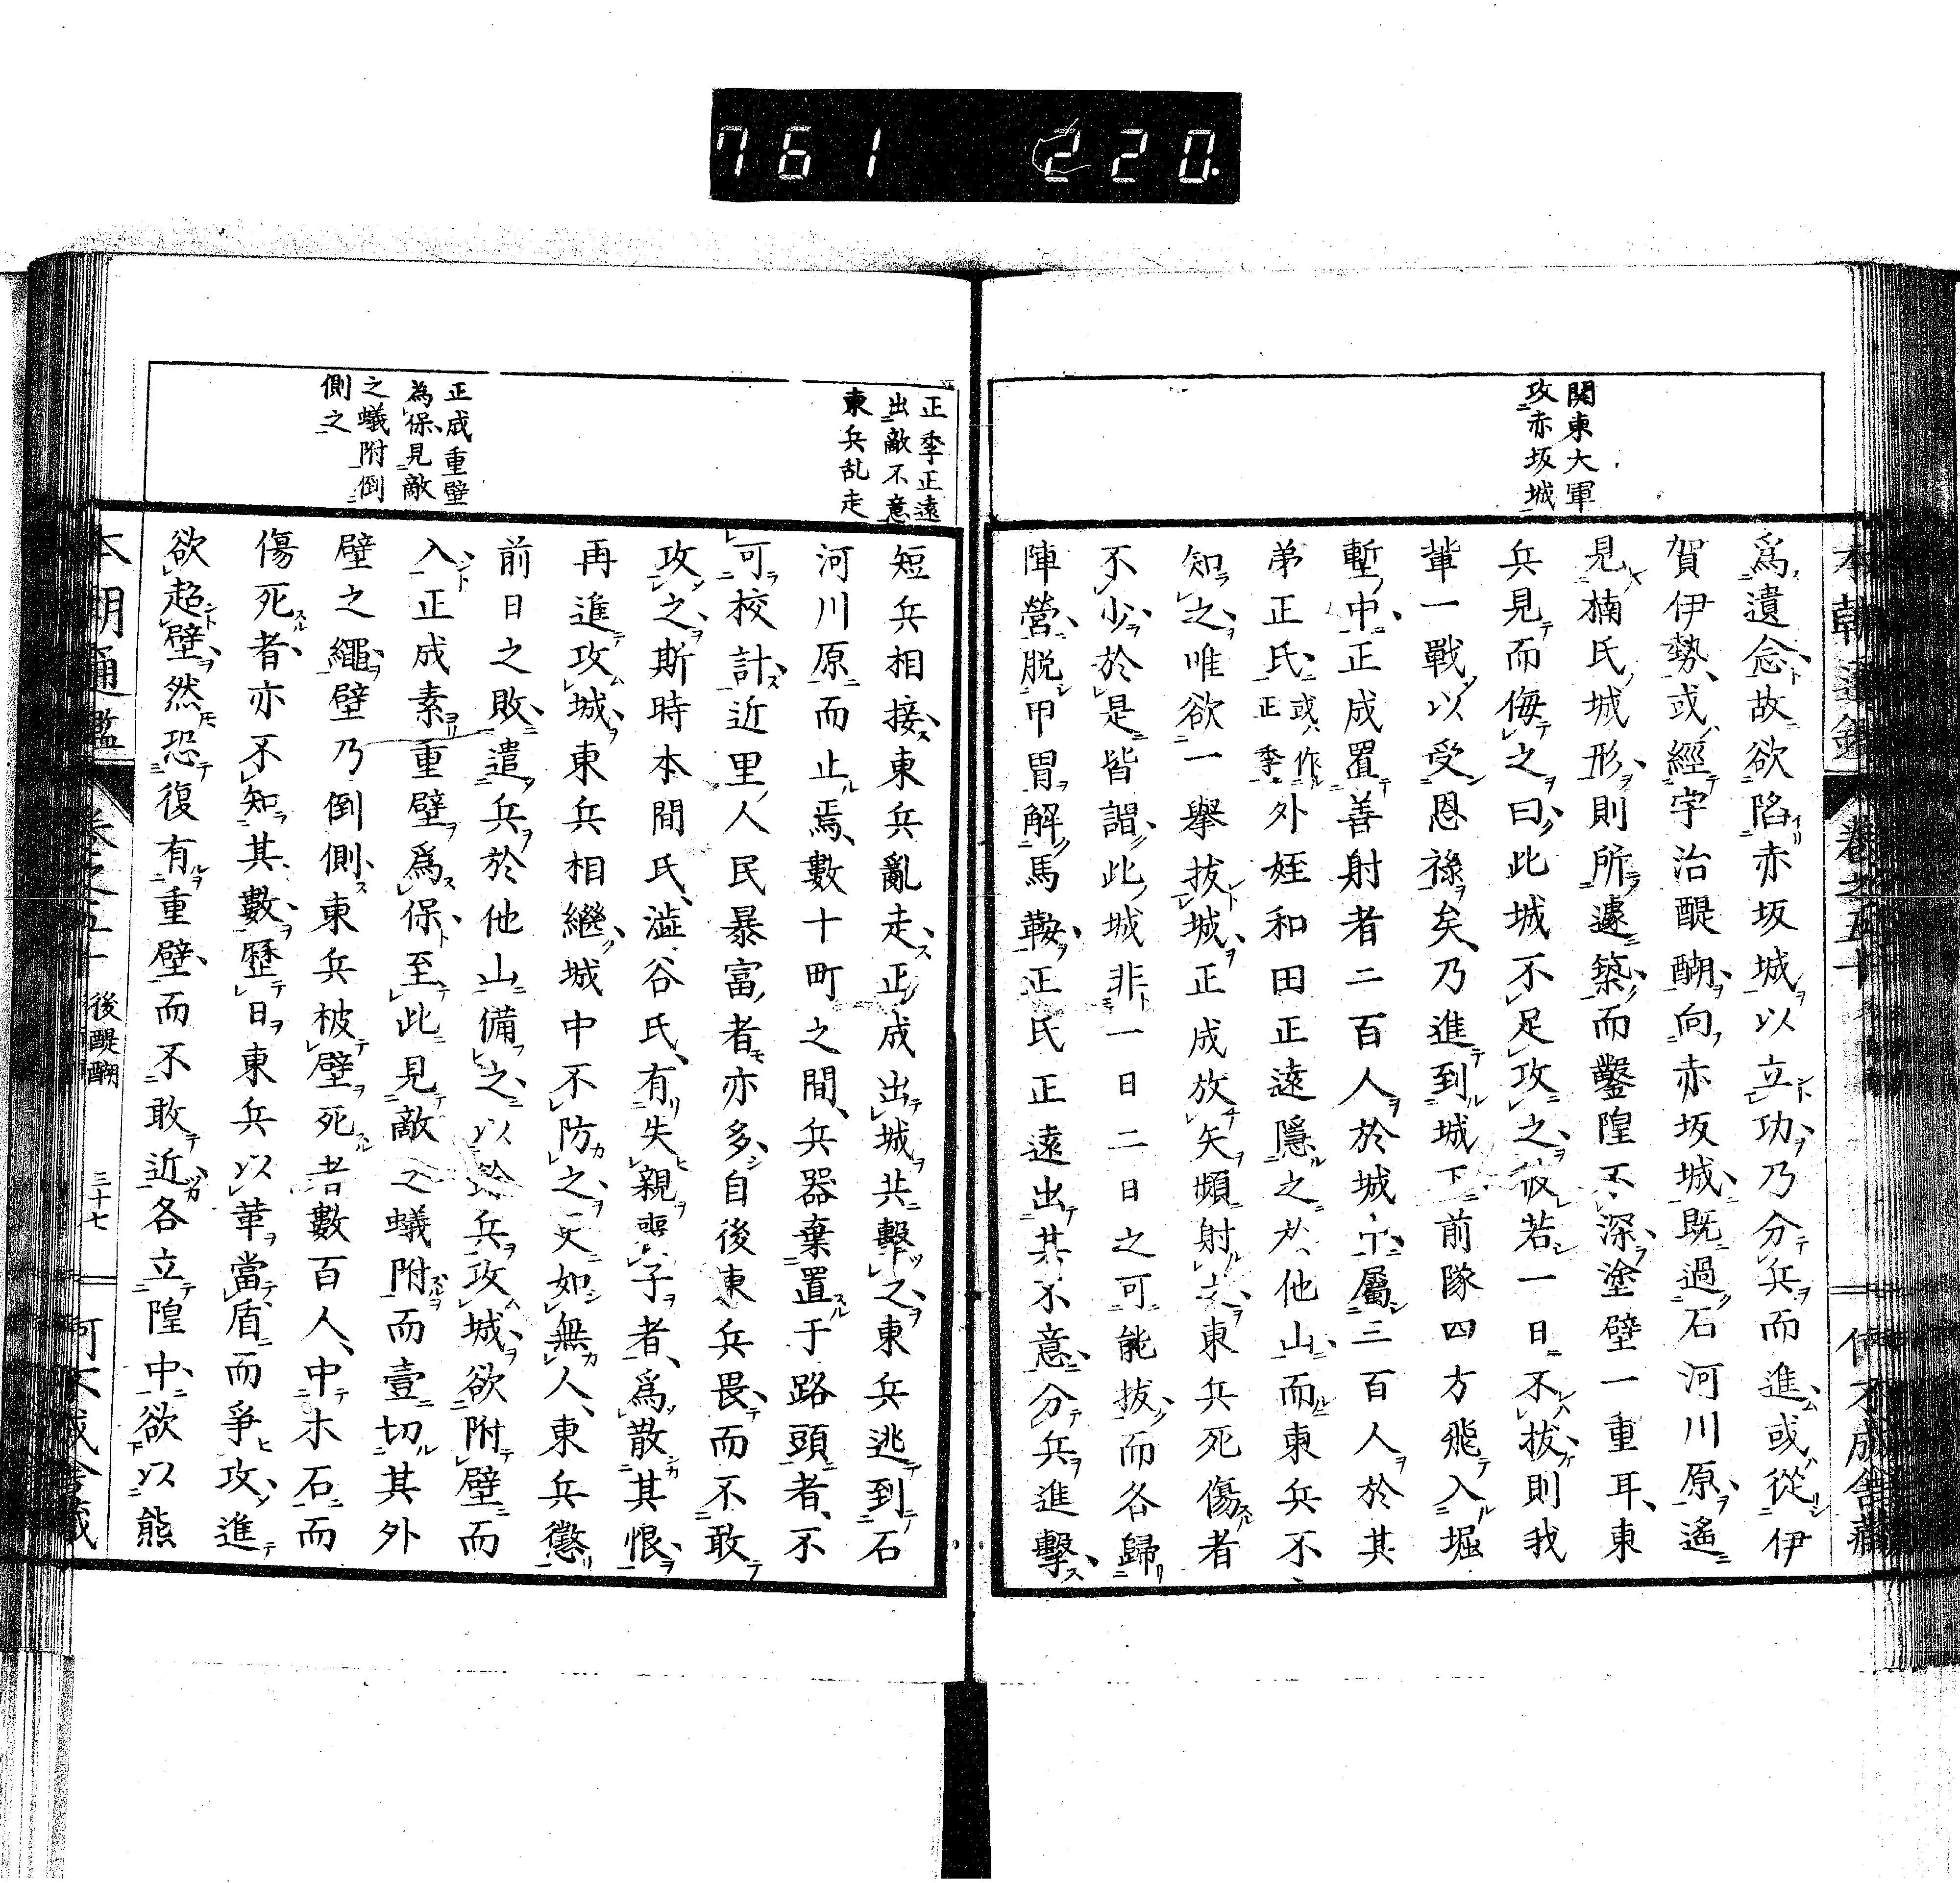 761 220
関東大軍
攻赤坂城
爲遺念故欲陷赤坂城以立功乃分兵而進或從伊
賀伊勢或經宇治醍醐向赤坂城既過石河川原遙
見楠氏城形則所遽築而鑿隍不深塗壁一重耳東
兵見而侮之曰此城不足攻之彼若一日不拔則我
輩一戰以受恩祿矣乃進到城下前隊四方飛入堀
塹中正成置善射者二百人於城中屬三百人於其
弟正氏或作正季外姪和田正遠隱之於他山而東兵不
知之唯欲一擧拔城正成放矢頻射之東兵死傷者
不少於是皆謂此城非一日二日之可能拔而各歸
陣營脱甲冑解馬鞍正氏正遠出其不意分兵進擊
正季正遠
出敵不意
東兵乱走
正成重壁
為保見敵
之蟻附倒
側之
短兵相接東兵亂走正成出城共擊之東兵逃到石
河川原而止焉數十町之間兵器棄置于路頭者不
可校計近里人民暴富者亦多自後東兵畏而不敢
攻之斯時本間氏澁谷氏有失親喪子者爲散其恨
再進攻城東兵相繼城中不防之又如無人東兵懲
前日之敗遣兵於他山備之以餘兵攻城欲附壁而
入正成素重壁爲保至此見敵之蟻附而壹切其外
壁之繩壁乃倒側東兵被壁死者數百人中木石而
傷死者亦不知其數歷日東兵以革當盾而爭攻進
欲超壁然恐復有重壁而不敢近各立隍中欲以熊
本朝通鑑 卷之五十 後醍醐 三十七